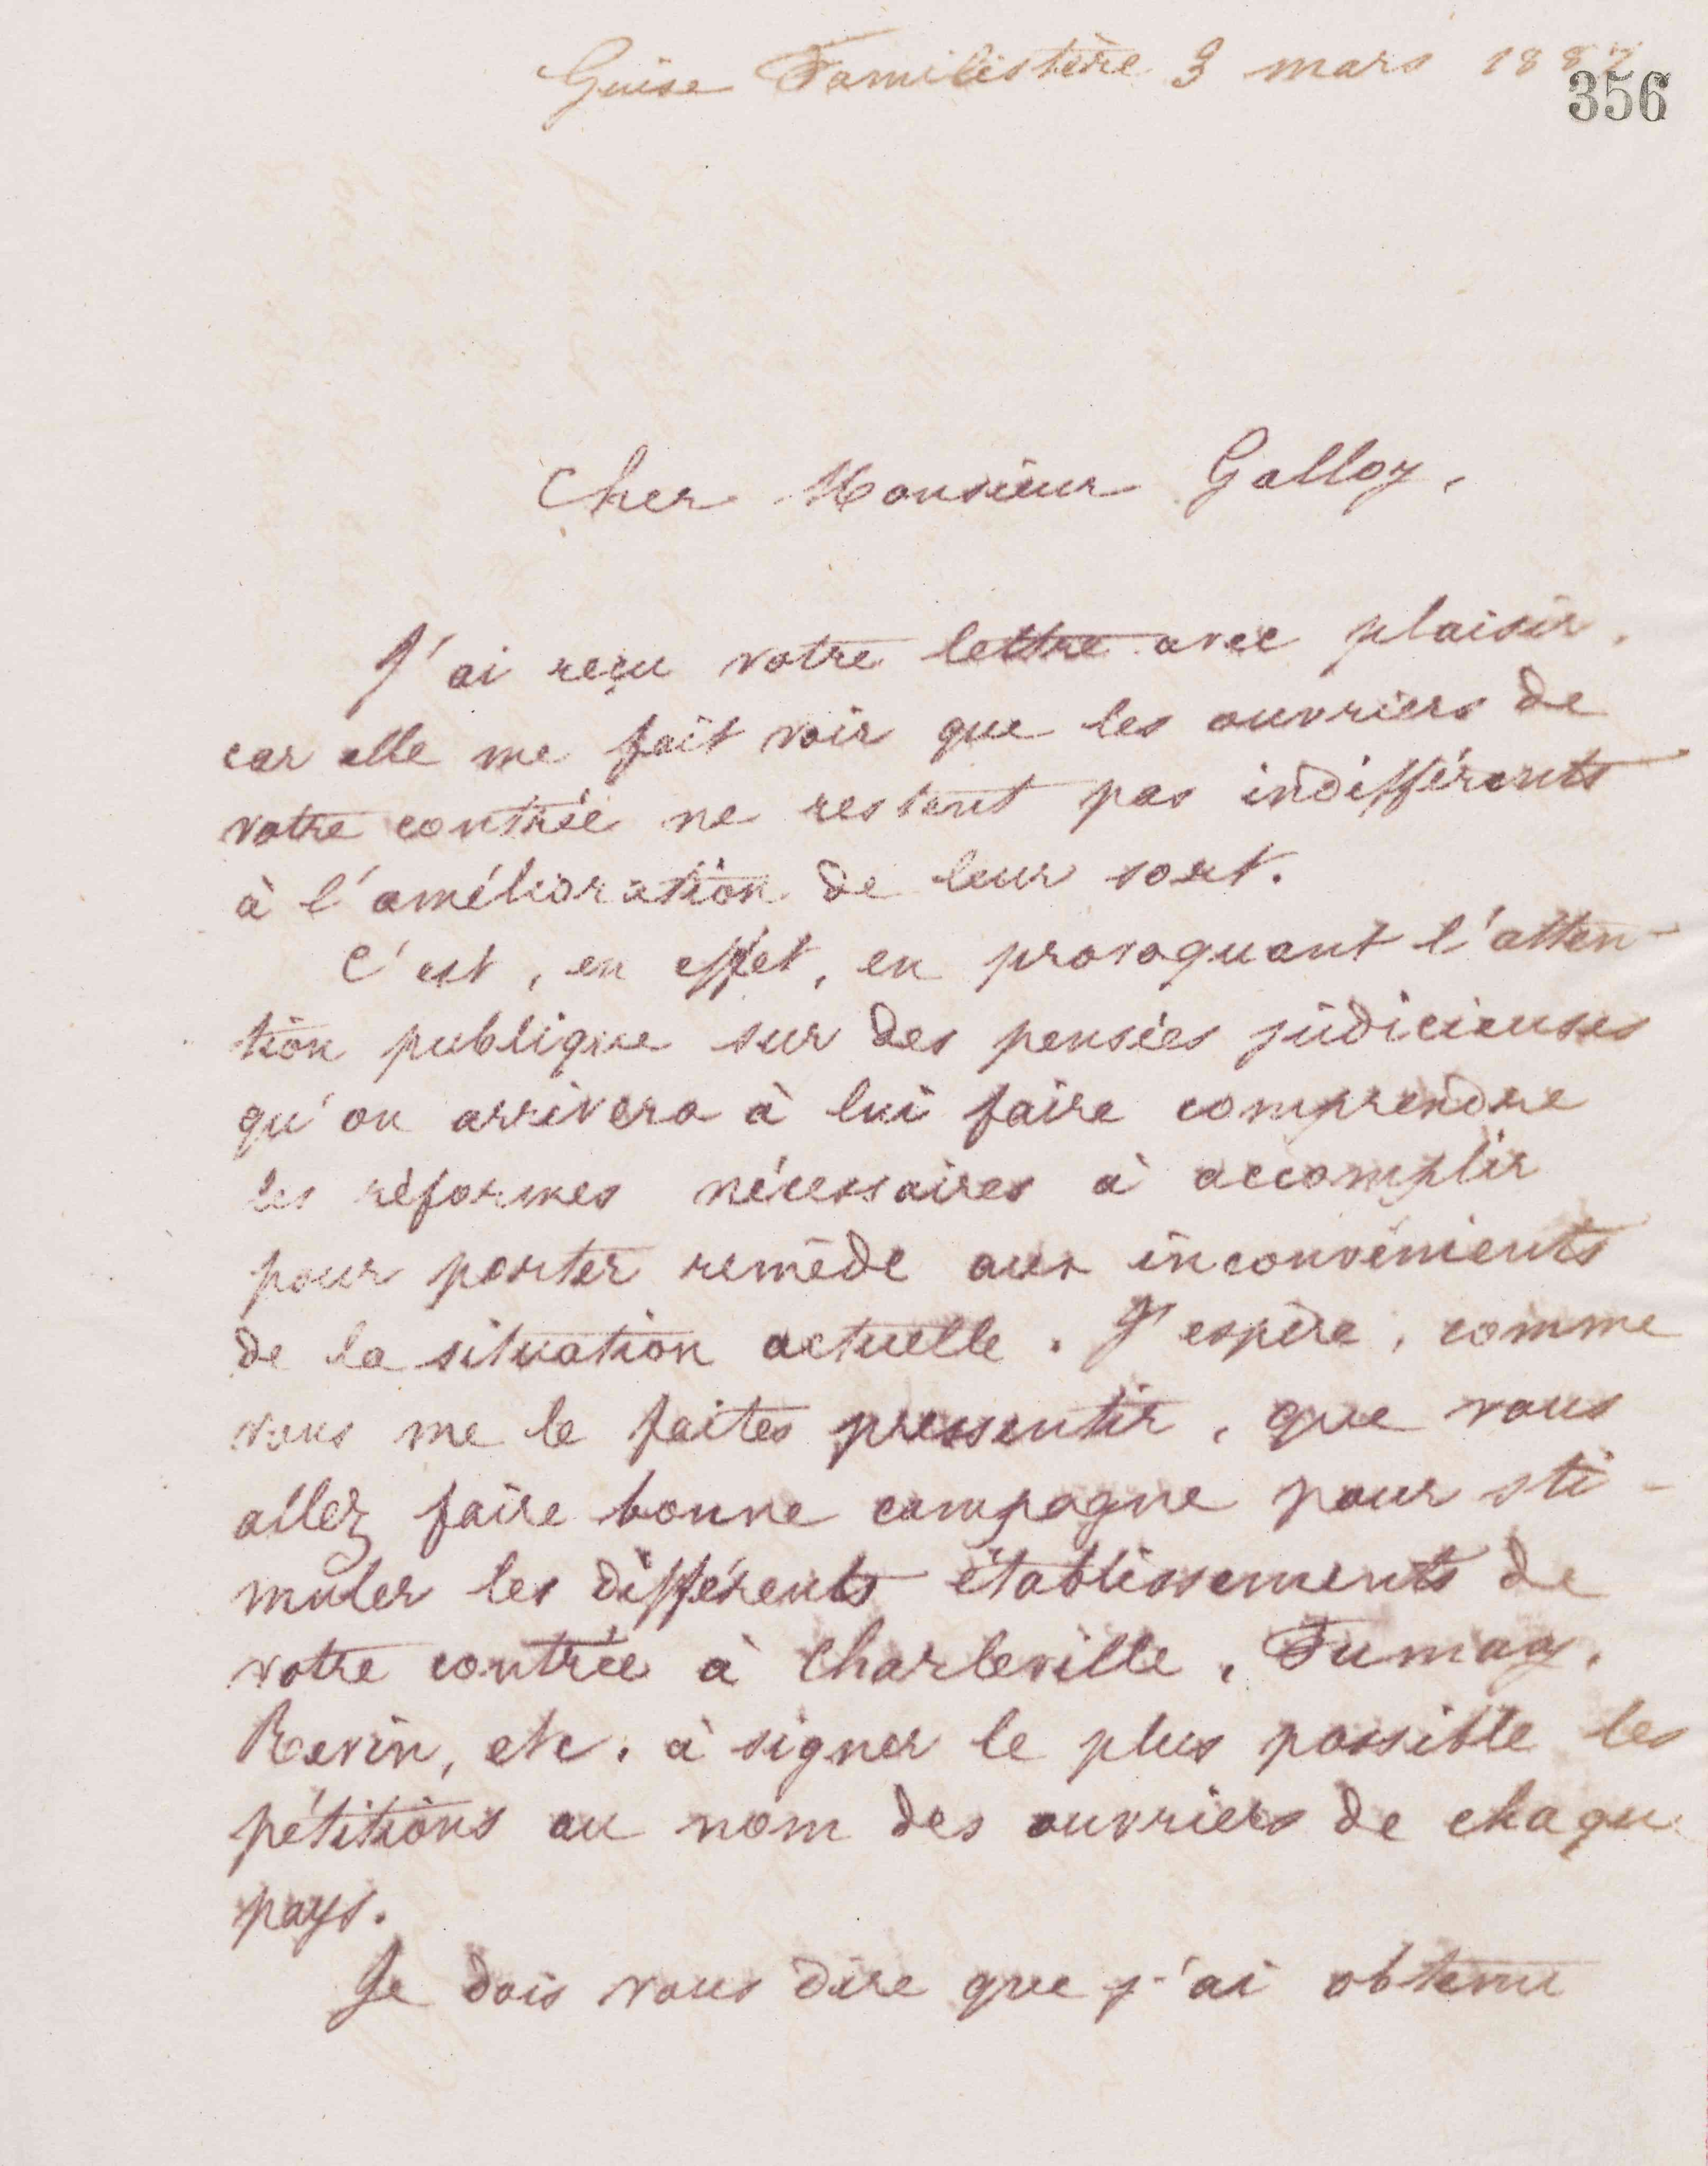 Guise Familistère 3 mars 1887
356
Cher Monsieur Galloy,
J'ai reçu votre lettre avec plaisir,
car elle me fait voir que les ouvriers de
votre contrée ne restent pas indifférents
à l'amélioration de leur sort.
C'est, en effet, en provoquant l'atten-
tion publique sur des pensées judicieuses
qu'on arrivera à lui faire comprendre
les réformes nécessaires à accomplir
pour porter remède aux inconvénients
de la situation actuelle. J'espère, comme
vous me le faites pressentir, que vous
allez faire bonne campagne pour sti-
muler les différents établissements de
votre contrée à Charleville, Fumay,
Revin, etc. à signer le plus possible les
pétitions au nom des ouvriers de chaqu
pays.
Je dois vous dire que j'ai obtenu